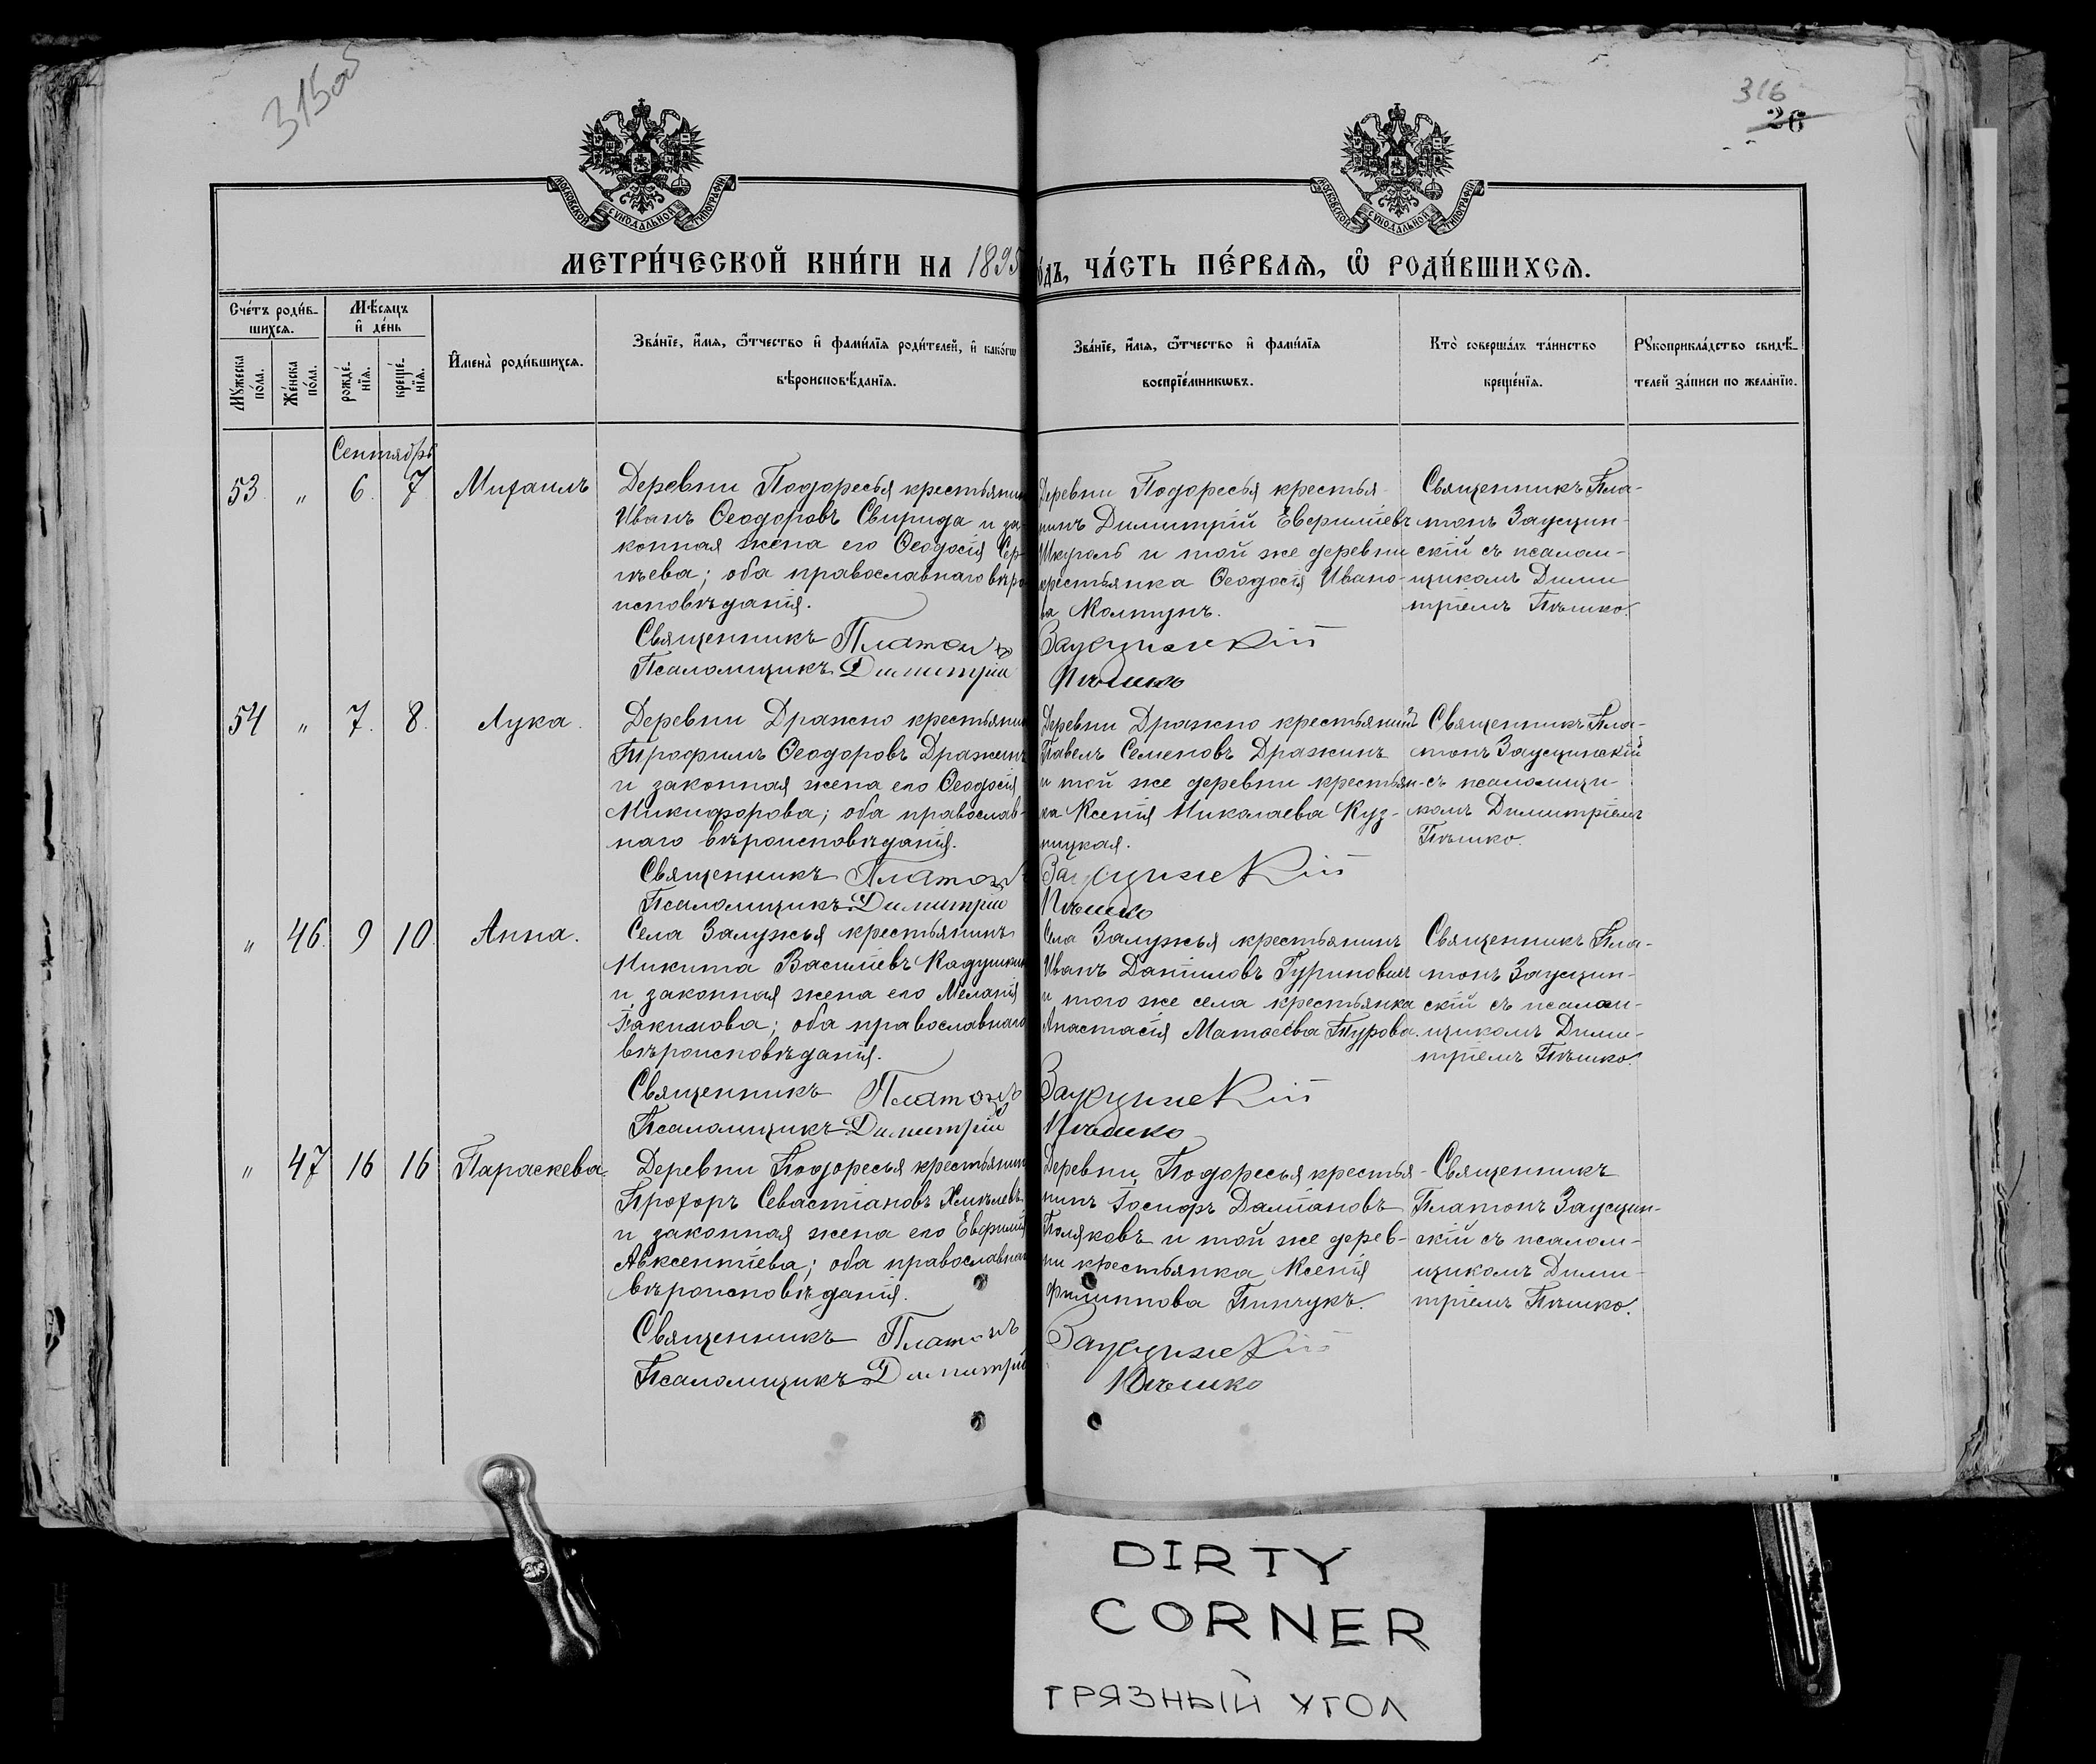 315об
316
26
МОСКОВСКОЙ СѴНОДАЛЬНОЙ ТИПОГРАФІИ
МОСКОВСКОЙ СѴНОДАЛЬНОЙ ТИПОГРАФІИ
МЕТРИ́ЧЕСКОЙ КНИ́ГИ НА 1895
о́дъ, ЧА́СТЬ ПЕ́РВАѦ, Ѡ҆ РОДИ́ВШИХСѦ.
Сче́тъ роди́в-
шихсѧ.
Мꙋ́жеска по́ла.
Же́нска по́ла.
Мѣ́сѧцъ
и҆ де́нь
рожде́-
нїѧ.
креще́-
нїѧ.
И҆мена̀ роди́вшихсѧ.
Зва́нїе, и҆́мѧ, ѻ҆́тчество и҆ фами́лїѧ роди́телей, и҆ како́гѡ
вѣроисповѣ́данїѧ.
Зва́нїе, и҆́мѧ, ѻ҆́тчество и҆ фами́лїѧ
воспрїе́мникѡвъ.
Кто̀ соверша́лъ та́инство
креще́нїѧ.
Рꙋкоприкла́дство свидѣ́-
телей за́писи по жела́нїю.
Сентябрь
53. " 6. 7. Михаилъ
Деревни Подоресья крестьянин
Иванъ Ѳеодоровъ Свирида и за-
конная жена его Ѳеодосія Сер-
гѣева; оба православнаго вѣро
исповѣданія.
Священникъ Платонъ
Псаломщикъ Димитрій
Деревни Подоресья крестья-
нинъ Димитрій Евфиміевъ
Шкуроль и той же деревни
крестьянка Ѳеодосія Ивано-
ва Колтунъ.
Заусцинскій
Пѣшко
Священникъ Пла-
тонъ Заусцин-
скій съ псалом-
щикомъ Дими
тріемъ Пѣшко.
54 " 7. 8. Лука.
Деревни Дражно крестьянин
Трофимъ Ѳеодоровъ Дражинъ
и законная жена его Ѳеодосія
Никифорова; оба православ-
наго вѣроисповѣданія.
Священникъ Платонъ
Псаломщикъ Димитрій
Деревни Дражно крестьянинъ
Павелъ Семеновъ Дражинъ
и той же деревни крестьян-
ка Ксенія Николаева Куз-
ницкая.
Заусцинскій
Пѣшко
Священникъ Пла-
тонъ Заусцинскій
съ псаломщи-
комъ Димитріемъ
Пѣшко.
" 46. 9 10. Анна.
Села Залужья крестьянинъ
Никита Василіевъ Кадушкин
и законная жена его Меланія
Іакимова; оба православнаго
вѣроисповѣданія.
Священникъ Платонъ
Псаломщикъ Димитрій
Села Залужья крестьянинъ
Иванъ Даніиловъ Гуриновичъ
и того же села крестьянка
Анастасія Матѳеева Турова.
Заусцинскій
Пѣшко
Священникъ Пла-
тонъ Заусцин-
скій съ псалом-
щикомъ Дими-
тріемъ Пѣшко.
" 47 16 16 Параскева.
Деревни Подоресья крестьянин
Прохоръ Севастіановъ Хмѣлевъ
и законная жена его Евфимія
Авксентіева; оба православнаг
вѣроисповѣданія.
Священникъ Платонъ
Псаломщикъ Димитрій
Деревни Подоресья крестья-
нинъ Іосифъ Даміановъ
Поляковъ и той же дерев-
ни крестьянка Ксенія
Филиппова Пинчукъ.
Заусцинскій
Пѣшко
Священникъ
Платонъ Заусцин-
скій съ псалом-
щикомъ Дими-
тріемъ Пѣшко.
DIRTY
CORNER
ГРЯЗНЫЙ УГОЛ